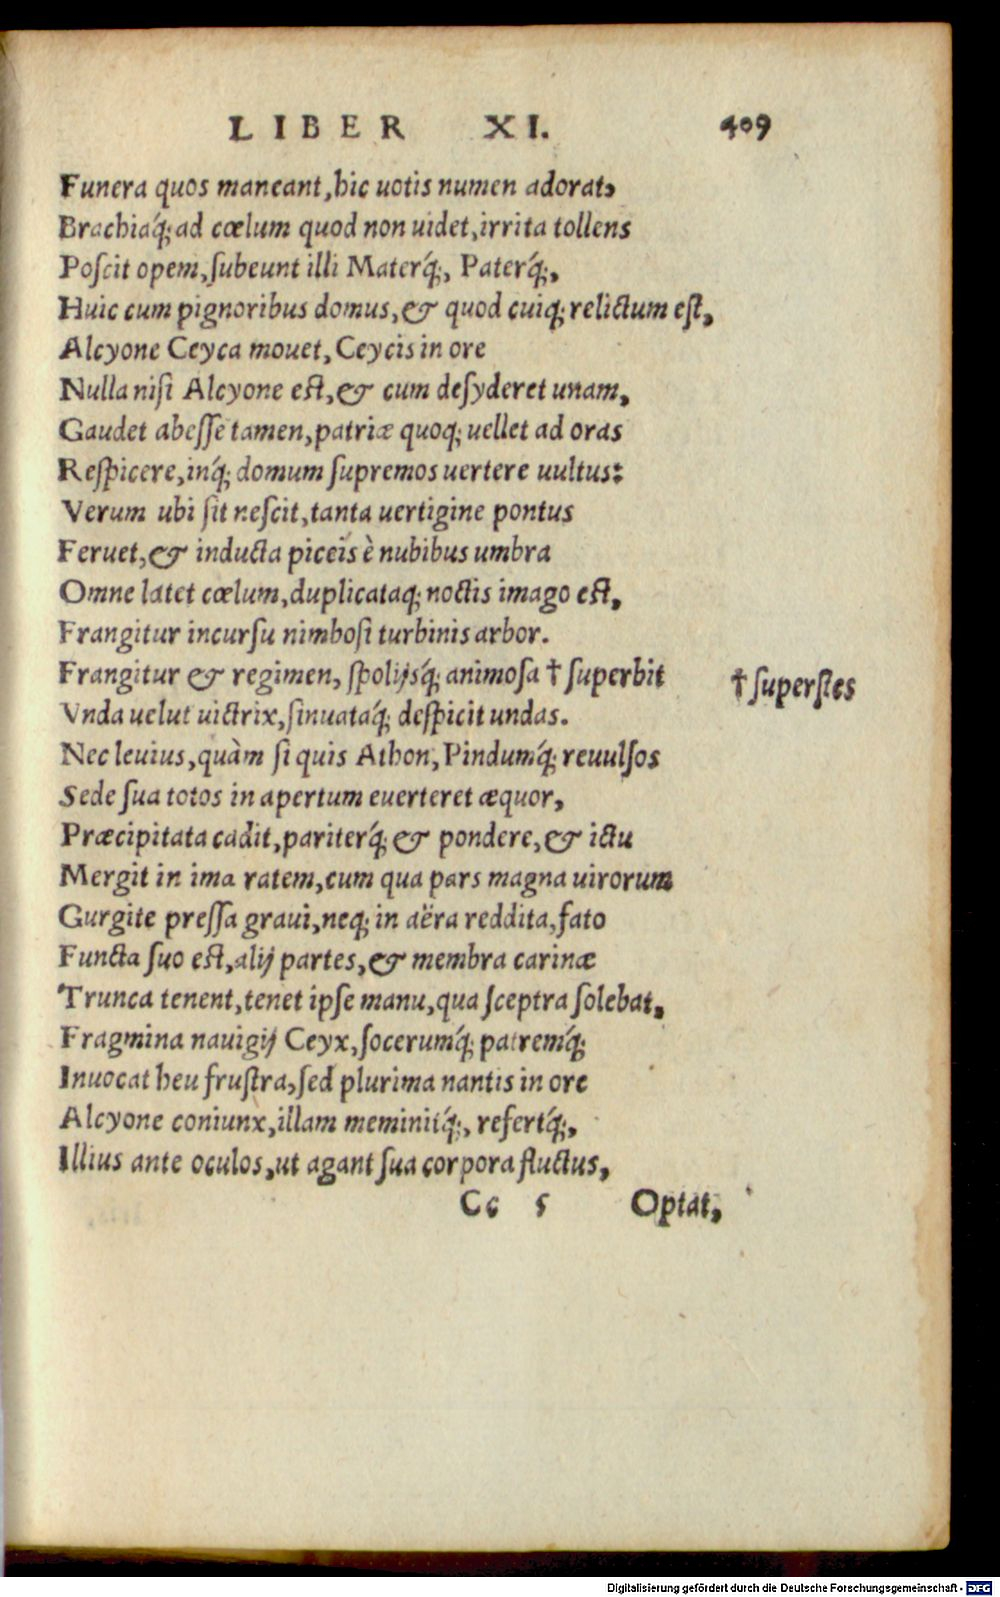 LIBER XI. 409
Funera quos maneant, hic uotis numen adorat,
Brachiaq́; ad cœlum quod non uidet, irrita tollens
Poſcit opem, ſubeunt illi Materq́;, Paterq́;,
Huic cum pignoribus domus, & quod cuiq; relictum eſt,
Alcyone Ceyca mouet, Ceycis in ore
Nulla niſi Alcyone eſt, & cum deſyderet unam,
Gaudet abeſſe tamen, patriæ quoq; uellet ad oras
Reſpicere, inq́; domum ſupremos uertere uultus:
Verum ubi ſit neſcit, tanta uertigine pontus
Feruet, & inducta piceis è nubibus umbra
Omne latet cœlum, duplicataq; noctis imago eſt,
Frangitur incurſu nimboſi turbinis arbor.
Frangitur & regimen, ſpolijsq́; animoſa † ſuperbit
† ſuperſtes
Vnda uelut uictrix, ſinuataq́; deſpicit undas.
Nec leuius, quàm ſi quis Athon, Pindumq́; reuulſos
Sede ſua totos in apertum euerteret æquor,
Præcipitata cadit, pariterq́; & pondere, & ictu
Mergit in ima ratem, cum qua pars magna uirorum
Gurgite preſſa graui, neq; in aëra reddita, fato
Functa ſuo eſt, alij partes, & membra carinæ
Trunca tenent, tenet ipſe manu, qua ſceptra ſolebat,
Fragmina nauigij Ceyx, ſocerumq́; patremq́;
Inuocat heu fruſtra, ſed plurima nantis in ore
Alcyone coniunx, illam meminitq́;, refertq́;,
Illius ante oculos, ut agant ſua corpora fluctus,
Cc 5 Optat,
Digitalisierung gefördert durch die Deutsche Forschungsgemeinschaft - DFG